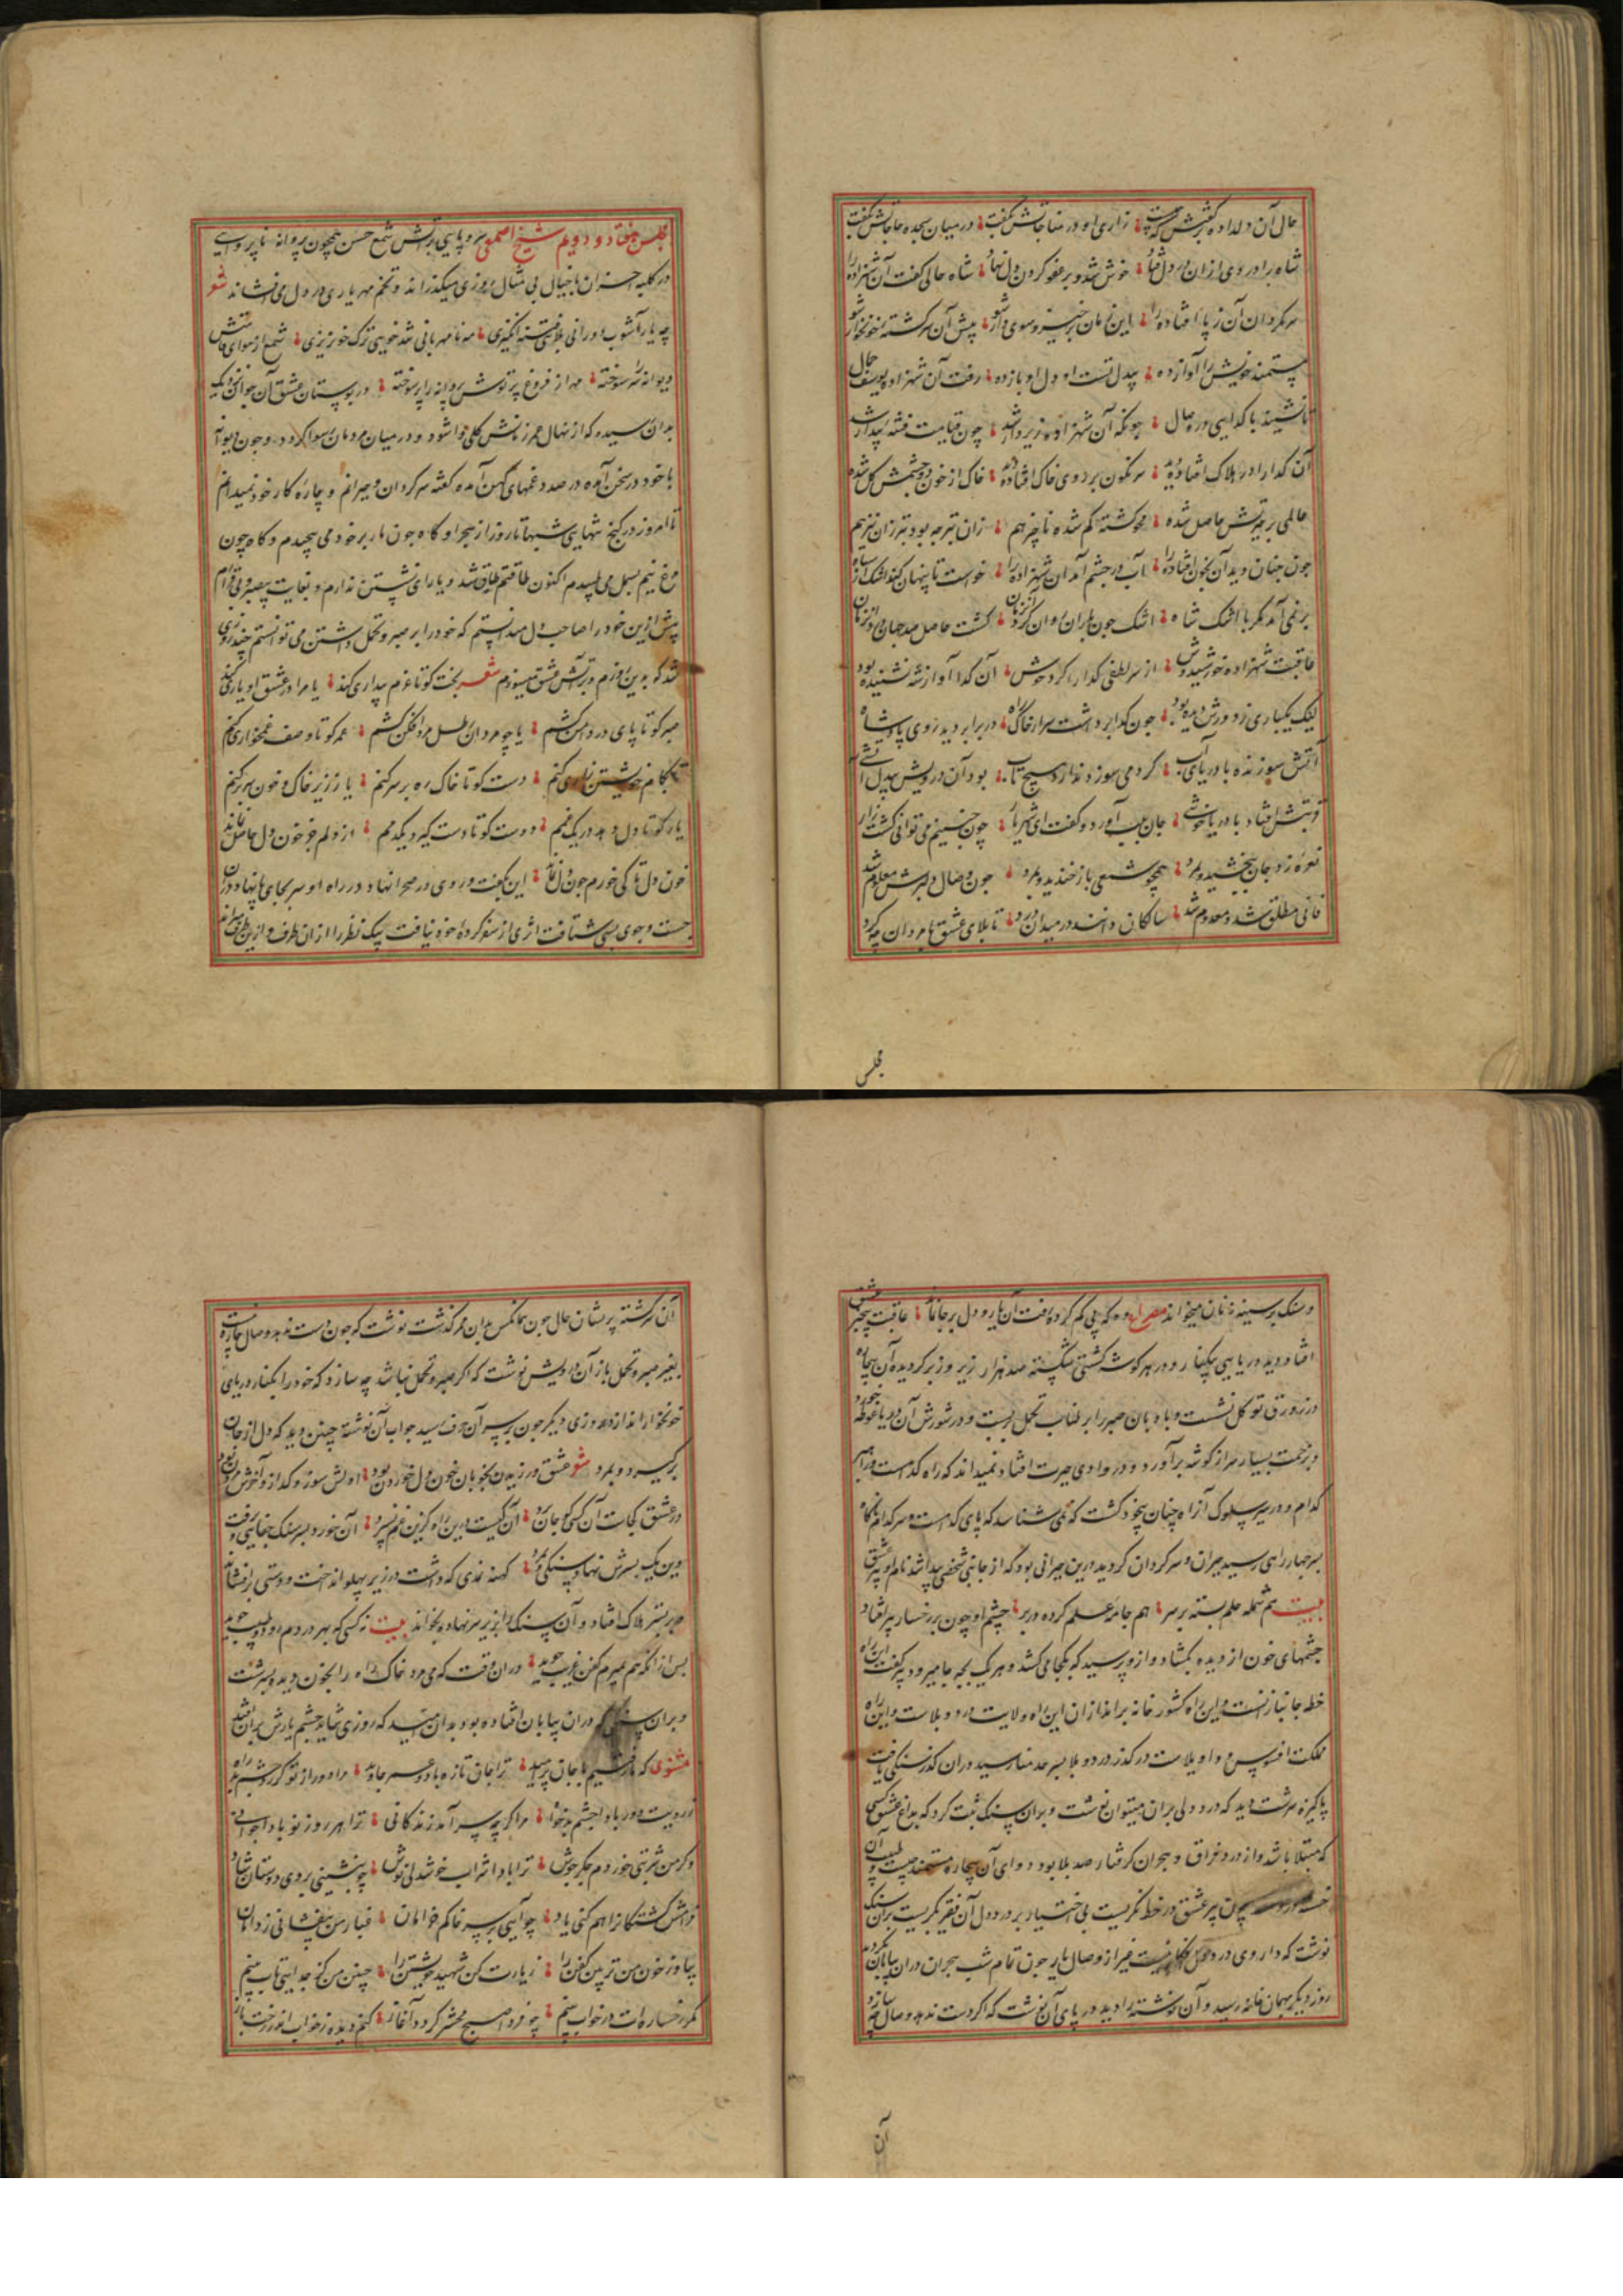 حال آن دلداده برکفتش که چیست ؛ زاری او در مناجاتش بگفت ؛ در میان سجده حاجاتش بگفت
شاه را دردی ازان در دل فتاد ؛ خوش شد و بر عفو کردن دل نهاد ؛ شاه حالی گفت آن شهزاده را
سر مگردان آن ز پا افتاده را ؛ این زمان برخیز و سوی دار شو ؛ پیش آن سرگشته خونخوار شو
مستمند خویش را آواز ده ؛ بیدل تست او دل او باز ده ؛ رفت آن شهزاده یوسف جمال
تا نشیند با گدایی در وصال ؛ چونکه آن شهزاده زیر دار شد ؛ چون قیامت فتنه بیدار شد
آن گدا را در هلاک افتاده دید ؛ سرنگون بر روی خاک افتاده دید ؛ خاک از خون دو چشمش گل شده
عالمی پر حیرتش حاصل شده ؛ محو گشته گم شده ناچیز هم ؛ زان بتر چه بود بتر زان نیز هم
چون چنان دید آن بخون افتاده را ؛ آب در چشم آمد آن شهزاده را ؛ خواست تا پنهان کند اشک از سپاه
بر نمی آمد مگر با اشک شاه ؛ اشک چون باران روان کرد آن زمان ؛ گشت حاصل صد جهان درد آن زمان
عاقبت شهزاده خورشید وش ؛ از سر لطفی گدا را کرد خوش ؛ آن گدا آواز شه نشنیده بود
لیک بسیاری ز دورش دیده بود ؛ چون گدا برداشت سر از خاک راه ؛ در برابر دید روی پادشاه
آتش سوزنده با دریای آب ؛ گر چه می سوزد ندارد هیچ تاب ؛ بود آن درویش بیدل آتشی
قربتش افتاد با دریا خوشی ؛ جان بلب آورد و گفت ای شهریار ؛ چون چنینم می توانی کشت زار
نعره زد جان ببخشید و بمرد ؛ همچو شمعی باز خندید و بمرد ؛ چون وصال دلبرش معلوم شد
فانی مطلق شد و معدوم شد ؛ سالکان دانند در میدان درد ؛ تا بلای عشق با مردان چه کرد
مجلس
مجلس هفتاد و دویم شیخ اصمعی سر و پایی بر آتش شمع حسن همچون پروانه ناپروایی
در کلبه احزان با خیال بی مثال روزی میگذراند و تخم مهر یاری در دل می افشاند شعر
چه یار آشوب دورانی بلایی فتنه انگیزی ؛ مه نامهربانی تند خویی ترک خونریزی ؛ شمع از سودای تابش
دیوانه سوخته ؛ مه از فروغ پرتوش پروانه را پر سوخته ؛ در بوستان عشق آن جوان
بدان رسیده که از نهال عمر زمانش گلی وا شود و در میان مردمان رسوا گردد و چون دیوانه
با خود در سخن آمده در صدد غمهای کهن آمده گفته سرگردان و حیرانم و چاره کار خود نمیدانم
تا امروز در کنج تنهایی شبها تا روز از هجر او گاه چون مار بر خود می پیچیدم و گاه چون
مرغ نیم بسمل می طپیدم اکنون طاقتم طاق شد و یارای نشستن ندارم و بغایت بیصبر و بی قرارم
پیش ازین خود را صاحب دل میدانستم که خود را بر صبر و تحمل داشتن می توانستم چند روزی
شد که بدین روزم و در آتش عشق میسوزم شعر بخت کو تا عزم بیداری کند ؛ یا مرا در عشق او یاری کند
صبر کو تا پای در دامن کشم ؛ یا چو مردان رطل مرد افکن کشم ؛ عمر کو تا وصف غمخواری کنم
یا بکام خویشتن زاری کنم ؛ دست کو تا خاک ره بر سر کنم ؛ یا ز زیر خاک و خون سر بر کنم
یار کو تا دل دهد در یک غمم ؛ دوست کو تا دست گیرد یکدمم ؛ از دلم جز خون دل حاصل نماند
خون دل تا کی خورم چون دل نماند ؛ این بگفت و روی در صحرا نهاد و در راه او سر بجای پا نهاد و در آن
جست و جوی بسی شتافت اثری از سفر کرده خود نیافت پیک نظر را از آن طرف و ازین طرف
و سنک بر سینه زنان میخواند مصراع وه که پی گم کرده رفت آن یار و دل بر جا نماند ؛ عاقبت
افتاد و دید دریایی بیکنار و در هر گوشه کشتی شکسته صد هزار زیر و زبر گردیده آن بیچاره
در زورق توکل نشست و بادبان صبر را بر طناب تحمل بست و در شورش آن دریا غوطه خورد
و بزحمت بسیار سر از گوشه برآورد و در وادی حیرت افتاد نمیداند که راه کدامست و راهبر
کدام و در سیر سلوک آن راه چنان بیخود گشت که نمی شناسد که پای کدامست و سر کدام ناگاه
بر سر چهار راهی رسید حیران و سرگردان گردید درین حیرانی بود که از جانبی شخصی پیدا شد نام او پیر عشق
بیت هم شمله حلم بسته بر سر ؛ هم جامه علم کرده در بر ؛ چشم او چون بر رخسار پیر افتاد
چشمهای خون از دیده بگشاد و ازو پرسید که بکجا می کشد و هر یک بچه جا میرود پیر گفت این راه
خطه جانبازانست و این راه کشور خانه براندازان این راه ولایت درد و بلاست و این راه
مملکت افسوس و واویلاست در گذر درد و بلا بسر حد منار رسید در آن گذر سنگی یافت
پاکیزه سرشت دید که درد دلی بران میتوان نوشت و بران سنک ثبت کرد که بداغ عشق کسی
که مبتلا باشد و از درد فراق و هجران گرفتار صد بلا بود دوای آن بیچاره مستمند چیست و طبیب آن
چون پیر عشق در خط نگریست بی اختیار بر درد دل آن فقیر بگریست بران سنک
نوشت که داروی درد نیست غیر از وصال یار چون تمام شب هجران در ان بیابان بگردید
روز دیگر بهمان خانه رسید و آن نوشته را دید در پای آن نوشت که اگر دست ندهد وصال چه سازد
آن
آن سرگشته پریشان حال چون همانکس بدان ممر گذشت نوشت که چون دست ندهد وصال چاره نیست
بغیر صبر و تحمل باز آن درویش نوشت که اگر صبر و تحمل نباشد چه سازد که خود را بکنار دریای
خونخوار اندازد روزی دیگر چون بر سر آن حرف رسید جواب آن نوشته چنین دید که دل از جان
برگیرد و بمرد شعر عشق ورزیدن بخوبان خون دل خوردن بود ؛ اولش سوز و گداز و آخرش مردن بود
در عشق کجاست آن کسی کو جان برد ؛ آن کیست درین راه کزین غم نبرد ؛
وین یک بسرش نهاد سنگی و بمرد ؛ کهنه نمدی که داشت در زیر پهلو انداخت و دستی بر افشاند
بر بستر هلاک افتاد و آن سنک را بزیر سر نهاد و بخواند بیت نه کسی که بهر دردم او طبیب جوید
پس از آنکه هم بمیرم کفن غریب جوید ؛ در ان وقت که می مرد خاک راه را بخون دیده بسرشت
و بران سنک در ان بیابان افتاده بود بدان امید که روزی شاید چشم یارش بران افتد
مثنوی که ما رفتیم با جان پر امید ؛ ترا جان تازه باد و عمر جاوید ؛ مرا دور از تو گر روز شبی بد
ز رویت دور بادا چشم بدخواه ؛ مرا گر چه بسر آمد زندگانی ؛ ترا هر روز نو بادا جوانی
و گر من شربتی خوردم جگر جوش ؛ ترا بادا شراب خوشدلی نوش ؛ چو بنشینی بروی دوستان شاد
فرامش گشتگانرا هم کنی یاد ؛ چو آیی بر سر خاکم خرامان ؛ غبار من بیفشانی ز دامان
بیا و ز خون من تر بین کفن را ؛ زیارت کن شهید خویشتن را ؛ چنین من کز جدایی تاب بینم
مگر رخساره ات در خواب بینم ؛ چو فردا صبح محشر گردد آغاز ؛ کنم دیده ز خواب